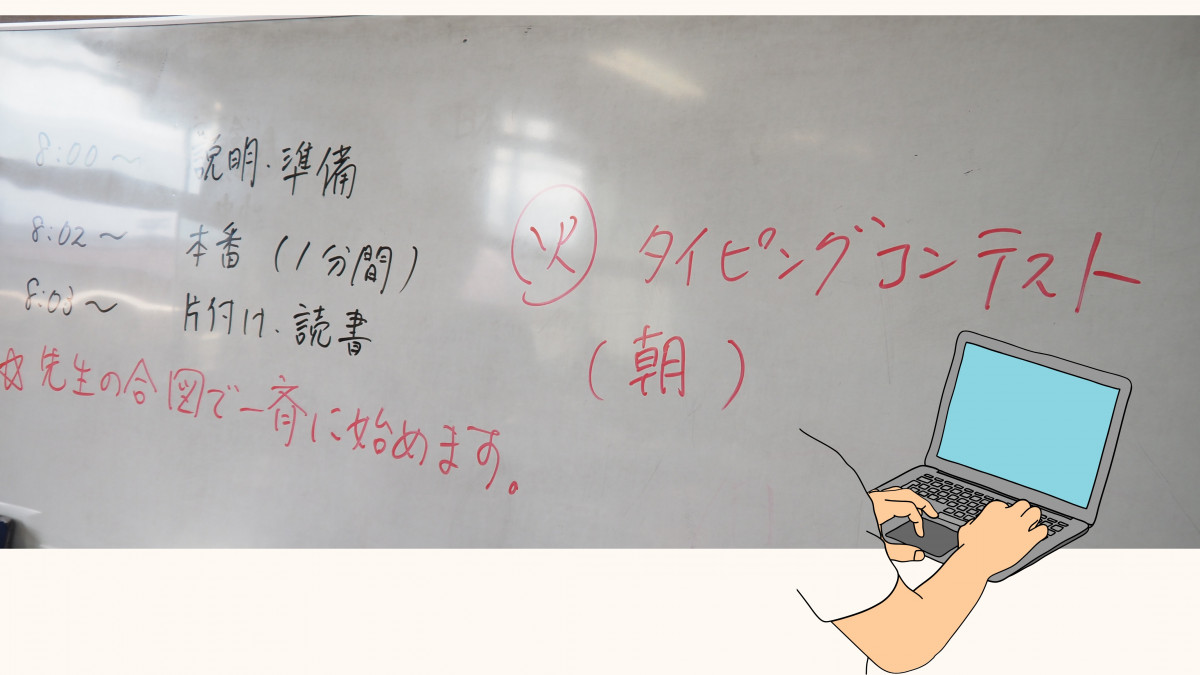 8:00〜 説明・準備
8:02〜 本番(1分間)
8:03〜 片付け・読書
☆先生の合図で一斉に始めます。
火 タイピングコンテスト
(朝)